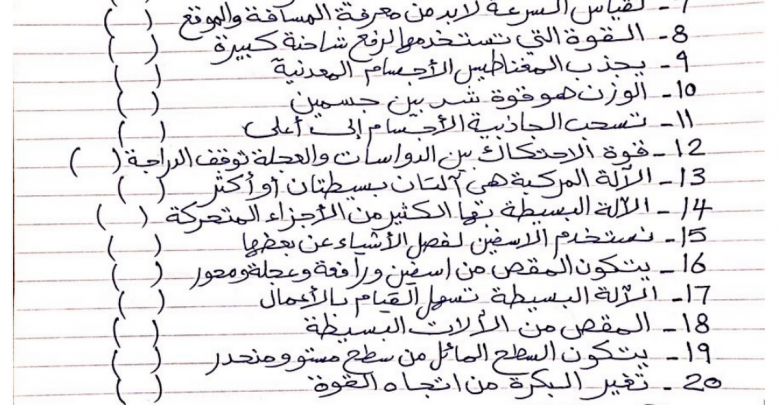 7- لقياس السرعة لابد من معرفة المسافة والموقع
8- القوة التي تستخدمها لرفع شاحنة كبيرة ( )
9- يجذب المغناطيس الأجسام المعدنية ( )
10- الوزن هو قوة شد بين جسمين ( )
11- تسحب الجاذبية الأجسام إلى أعلى ( )
12- قوة الاحتكاك بين الدواسات والعجلة توقف الدراجة ( )
13- الآلة المركبة هي آلتان بسيطتان أو أكثر ( )
14- الآلة البسيطة بها الكثير من الأجزاء المتحركة ( )
15- نستخدم الاسفين لفصل الأشياء عن بعضها ( )
16- يتكون المقص من اسفين ورافعة وعجلة ومحور ( )
17- الآلة البسيطة تسهل القيام بالأعمال ( )
18- المقص من الألات البسيطة ( )
19- يتكون السطح المائل من سطح مستو ومنحدر ( )
20- تغير البكرة من اتجاه القوة ( )